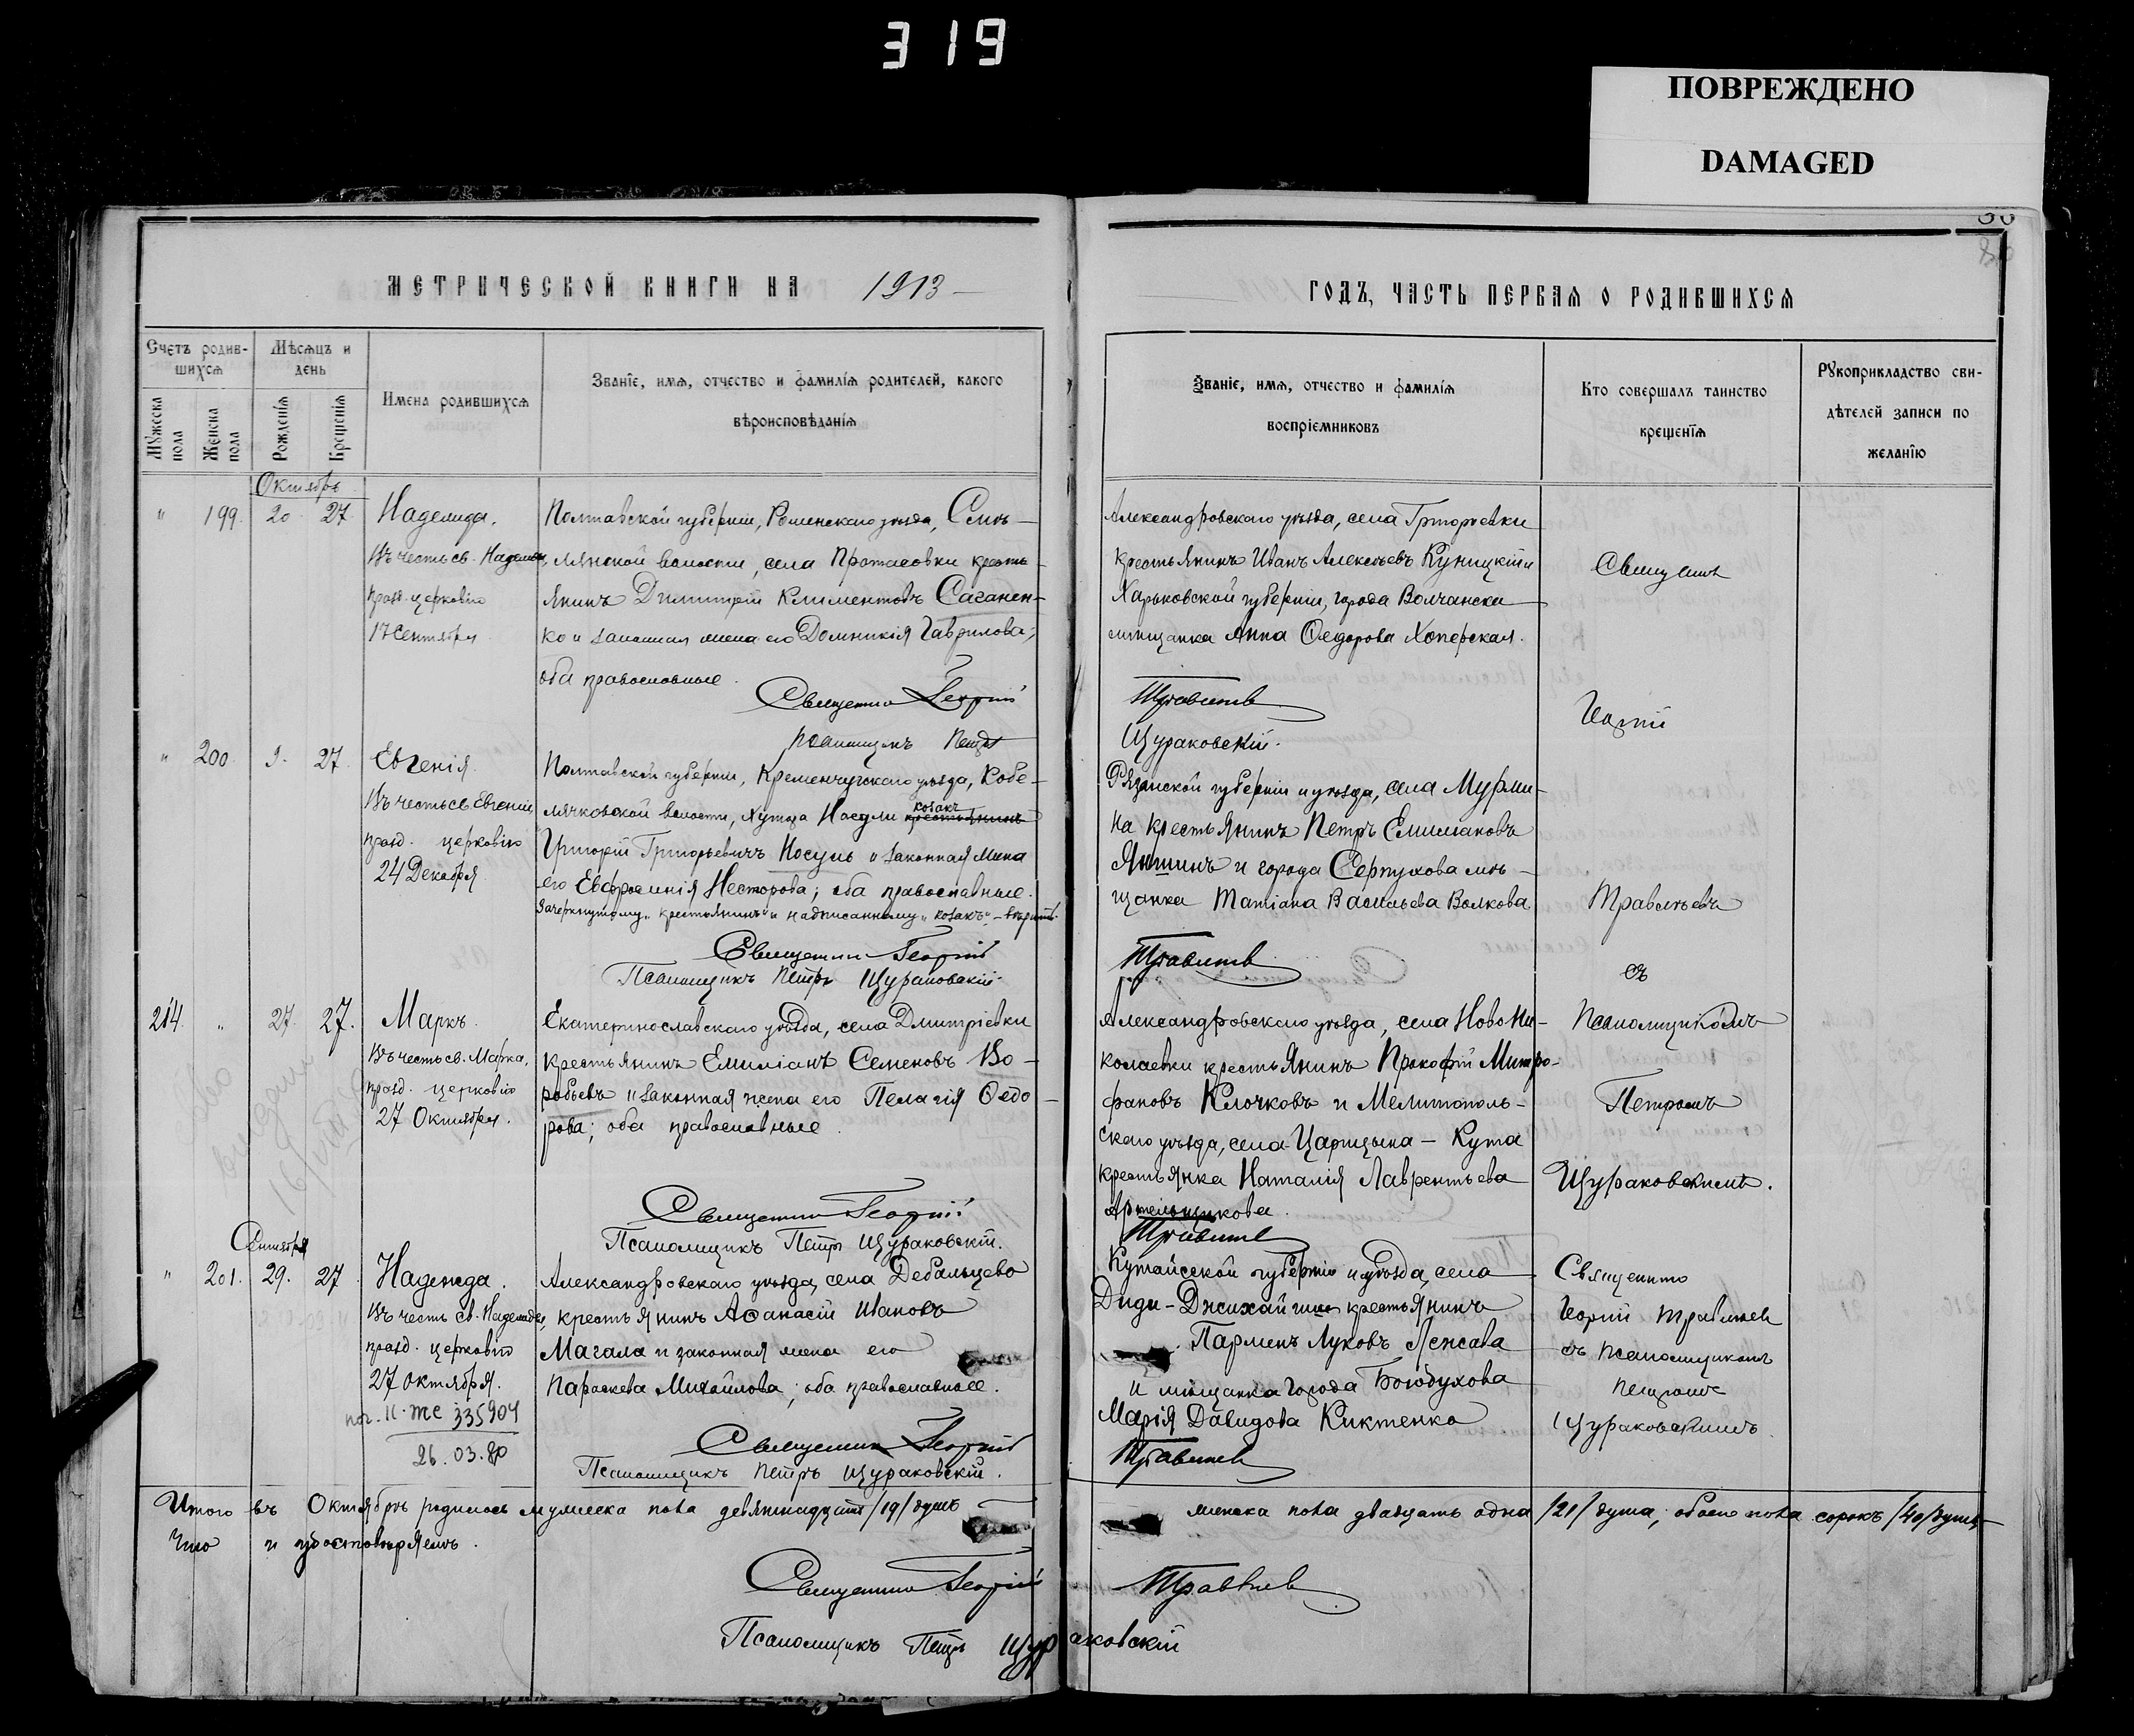 319
ПОВРЕЖДЕНО
DAMAGED
МЕТРИЧЕСКОЙ КНИГИ НА 1913
ГОДЪ, ЧАСТЬ ПЕРВАЯ О РОДИВШИХСЯ
Счетъ родив-
шихся
Мужеска пола
Женска пола
Мѣсяцъ и
день
Рожденія
Крещенія
Имена родившихся
Званіе, имя, отчество и фамилія родителей, какого
вѣроисповѣданія
Званіе, имя, отчество и фамилія
воспріемниковъ
Кто совершалъ таинство
крещенія
Рукоприкладство сви-
дѣтелей записи по
желанію
Октябрь
" 199. 20 27
Надежда.
Въ честь св. Надежды,
празд. церковію
17 Сентября
Полтавской губерніи, Роменскаго уѣзда, Смѣ-
лянской волости, села Протасовки кресть-
янинъ Димитрій Климентовъ Саганен-
ко и законная жена его Домникія Гаврилова;
оба православные.
Священникъ Георгій
Псаломщикъ Петръ
Александровскаго уѣзда, села Григорьевки
крестьянинъ Иванъ Алексѣевъ Куницкій и
Харьковской губерніи, города Волчанска
мѣщанка Анна Ѳедорова Хоперская.
Травлѣевъ
Щураковскій.
Священникъ
Георгій
" 200. 9. 27
Евгенія.
Въ честь св. Евгеніи,
празд. церковію
24 Декабря
Полтавской губерніи, Кременчугскаго уѣзда, Кобе-
лячковской волости, хутора Носули козакъ крестьянинъ
Григорій Григорьевичъ Носуль и законная жена
его Евфросинія Несторова; оба православные.
Зачеркнутому "крестьянинъ" и надписанному "козакъ" – вѣрить.
Священникъ Георгій
Псаломщикъ Петръ Щураковскій
Рязанской губерніи и уѣзда, села Мурми-
на крестьянинъ Петръ Емиліановъ
и города Серпухова мѣ-
щанка Татіана Васильева Волкова
Травлѣевъ
Травлѣевъ
съ
214. " 27. 27.
Маркъ.
Въ честь св. Марка,
празд. церковію
27 Октября.
Екатеринославскаго уѣзда, села Дмитріевки
крестьянинъ Емиліанъ Семеновъ Во-
робьевъ и законная жена его Пелагія Ѳедо-
рова; оба православные.
Священникъ Георгій
Псаломщикъ Петръ Щураковскій.
Александровскаго уѣзда, села Ново Ни-
колаевки крестьянинъ Прокофій Митро-
фановъ Клочковъ и Мелитополь-
скаго уѣзда, села Царицына – Кута
крестьянка Наталія Лаврентьева
Артельщикова.
Травлѣевъ
Псаломщикомъ
Петромъ
Щураковскимъ.
Сентября
" 201. 29. 27
Надежда.
Въ честь св. Надежды,
празд. церковію
27 октября.
335904
26.03.80
Александровскаго уѣзда, села Дебальцево
крестьянинъ Аѳанасій Ивановъ
Магала и законная жена его
Параскева Михайлова; оба православные.
Священникъ Георгій
Псаломщикъ Петръ Щураковскій.
Кутаисской губерніи и уѣзда, села
Диди-Джихаиши крестьянинъ
Парменъ Луковъ Лежава
и мѣщанка города Богодухова
Марія Давидова Киктенко
Травлѣевъ
Священникъ
Георгій Травлѣевъ
съ псаломщикомъ
Петромъ
Щураковскимъ.
Итого въ Октябрѣ родилось мужеска пола девятнадцать /19/ душъ
женска пола двадцать одна /21/ душа; обоего пола сорокъ /40/ душъ
Что и удостовѣряемъ.
Священникъ Георгій Травлѣевъ
Псаломщикъ Петръ Щураковскій